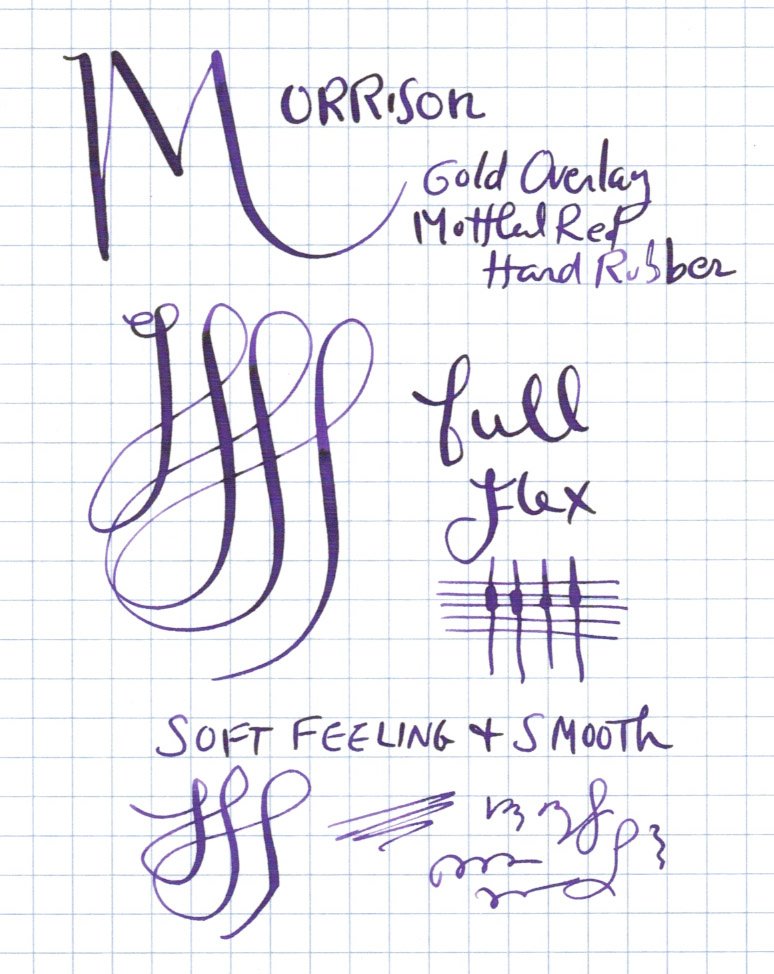 MORRISON
Gold Overlay
Mottled Red
Hard Rubber
full
flex
SOFT FEELING + SMOOTH